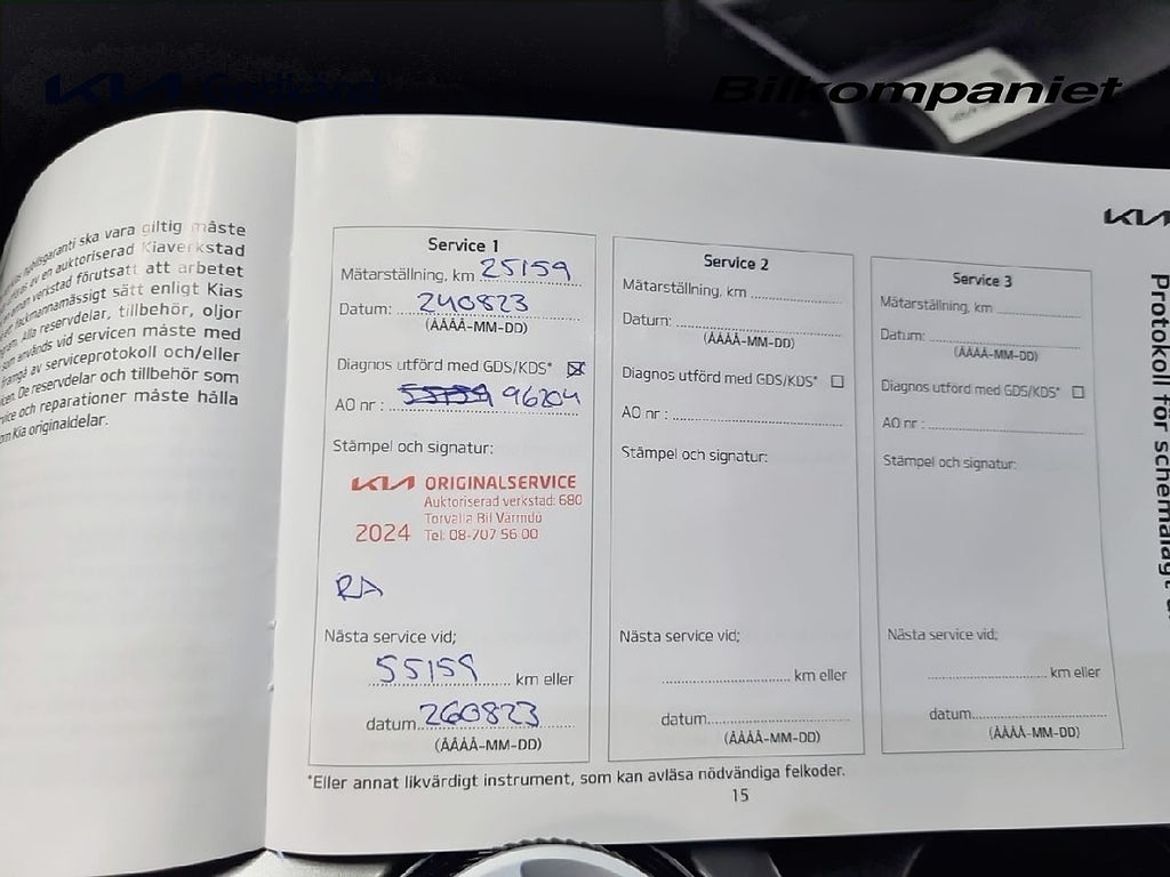 KIA Godkänd
Bilkompaniet
ska vara giltig måste
av en auktoriserad Kiaverkstad
annan verkstad förutsatt att arbetet
fackmannamässigt sätt enligt Kias
Alla reservdelar, tillbehör, oljor
som används vid servicen måste med
framgå av serviceprotokoll och/eller
De reservdelar och tillbehör som
och reparationer måste hålla
Kia originaldelar.
KIA
Protokoll för schemalagt
Service 1
Mätarställning, km 25159
Datum: 240823
(ÅÅÅÅ-MM-DD)
Diagnos utförd med GDS/KDS*
AO nr : 96204
Stämpel och signatur:
KIA ORIGINALSERVICE
Auktoriserad verkstad: 680
Torvalla Bil Värmdö
2024 Tel: 08-707 56 00
RA
Nästa service vid;
55159 km eller
datum. 260823
(ÅÅÅÅ-MM-DD)
Service 2
Mätarställning, km
Datum:
(ÅÅÅÅ-MM-DD)
Diagnos utförd med GDS/KDS*
AO nr :
Stämpel och signatur:
Nästa service vid;
km eller
datum
(ÅÅÅÅ-MM-DD)
Service 3
Mätarställning, km
Datum:
(ÅÅÅÅ-MM-DD)
Diagnos utförd med GDS/KDS*
AO nr :
Stämpel och signatur:
Nästa service vid;
km eller
datum
(ÅÅÅÅ-MM-DD)
*Eller annat likvärdigt instrument, som kan avläsa nödvändiga felkoder.
15